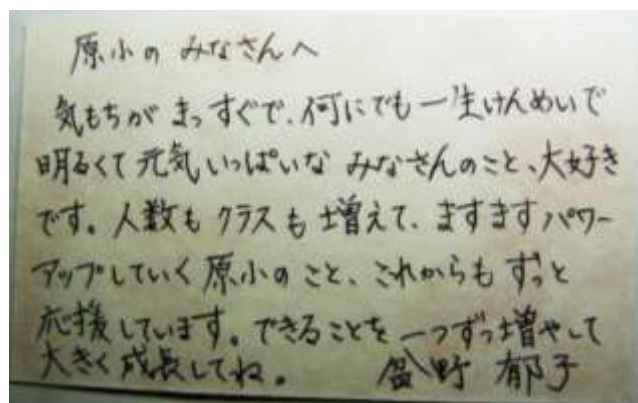 原小の みなさんへ
気もちが まっすぐで、何にでも一生けんめいで
明るくて元気いっぱいな みなさんのこと、大好き
です。人数も クラスも 増えて、ますますパワー
アップしていく原小のこと、これからも ずっと
応援しています。できることを 一つずつ増やして
大きく成長してね。 盆野 郁子